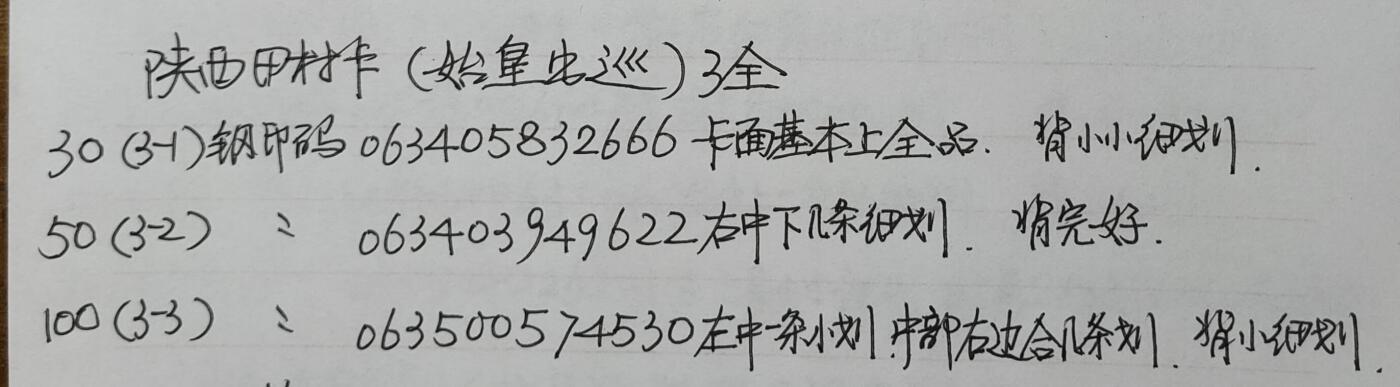 陕西田村卡(始皇出巡)3全
30(3-1)钢印码063405832666卡面基本上全品. 背小小细划.
50(3-2) 〃 063403949622右中下几条细划. 背完好.
100(3-3) 〃 063500574530左中一条小划.中部右边合几条划. 背小细划.